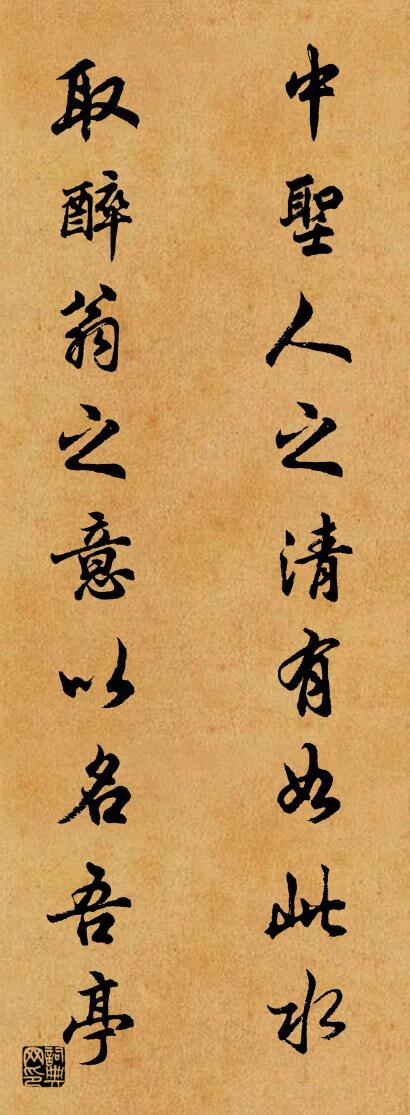 中聖人之清有如此水
取醉翁之意以名吾亭
詞典網印